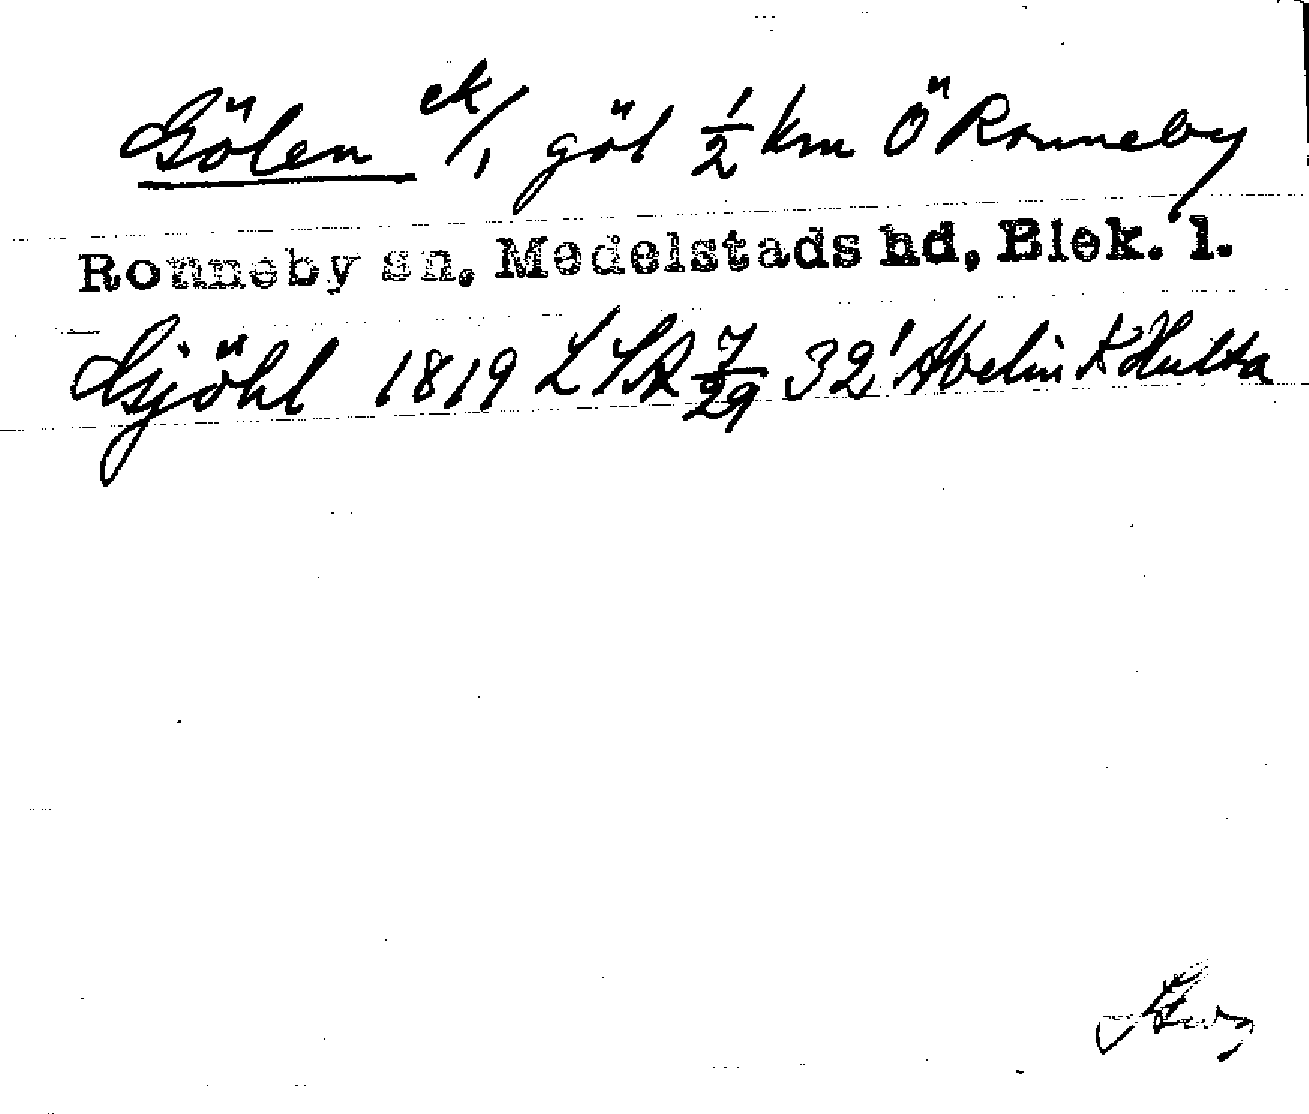 Gölen ek/, göl 1/2 km Ö Ronneby
Ronneby sn, Medelstads hd, Blek. l.
Gjöhl 1819 LSA 7/29 32' Abelin K Hulta